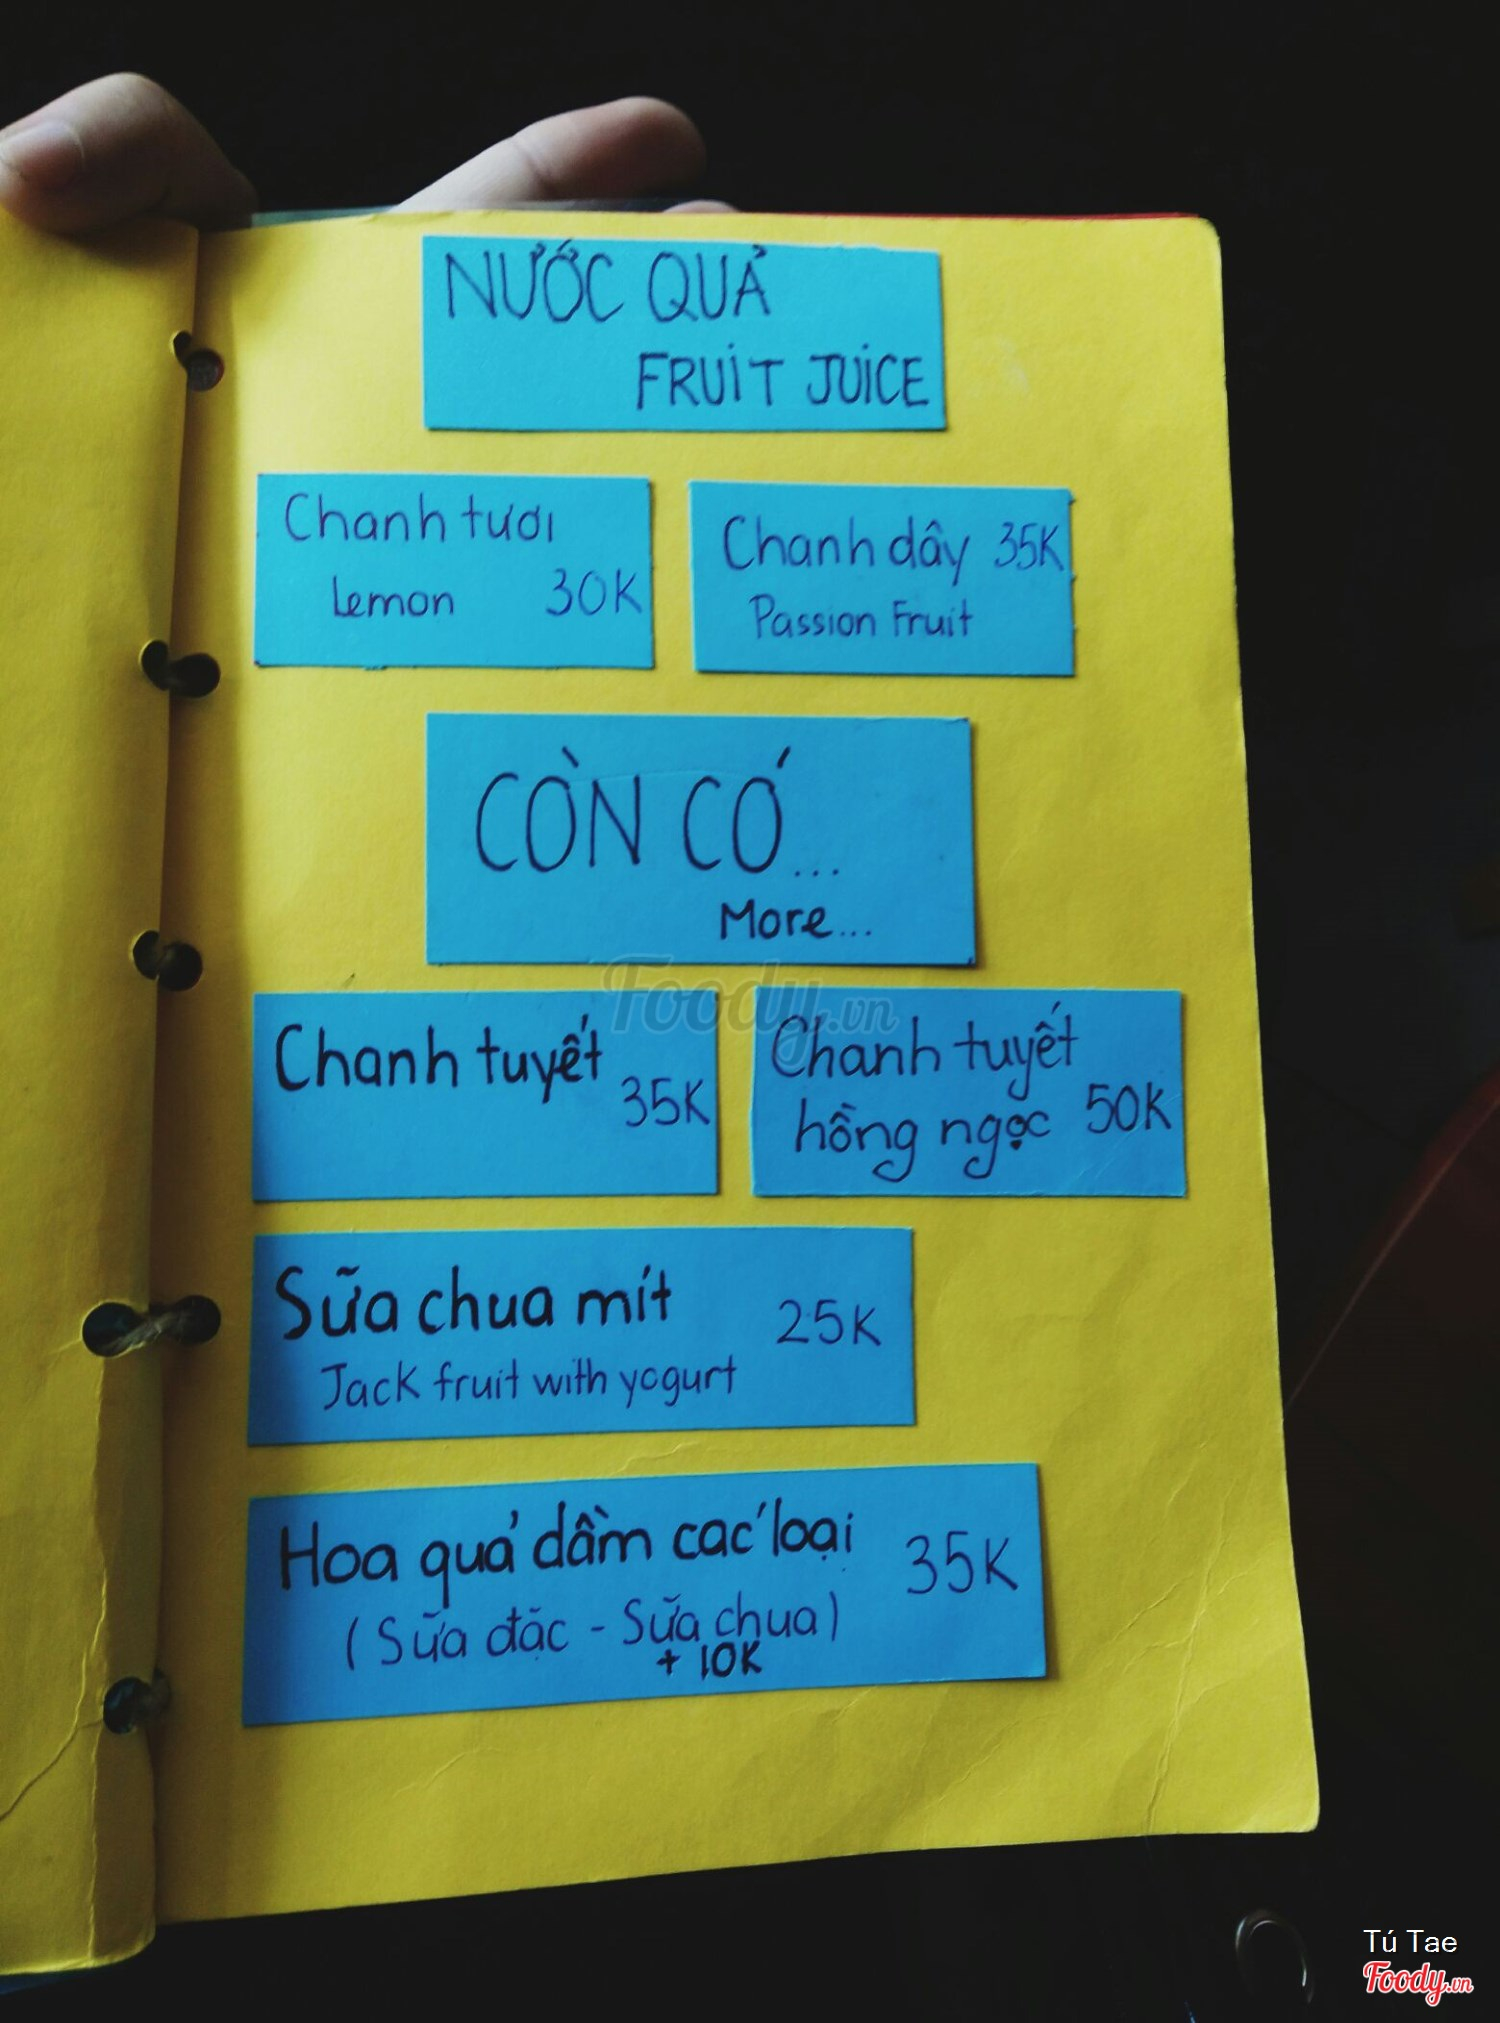 NƯỚC QUẢ
FRUIT JUICE
Chanh tươi
Lemon 30K
Chanh dây 35K
Passion Fruit
CÒN CÓ...
More...
Foody.vn
Chanh tuyết
35K
Chanh tuyết
hồng ngọc 50K
Sữa chua mít 25K
Jack fruit with yogurt
Hoa quả dầm các loại 35K
(Sữa đặc - Sữa chua)
+ 10K
Tú Tae
Foody.vn